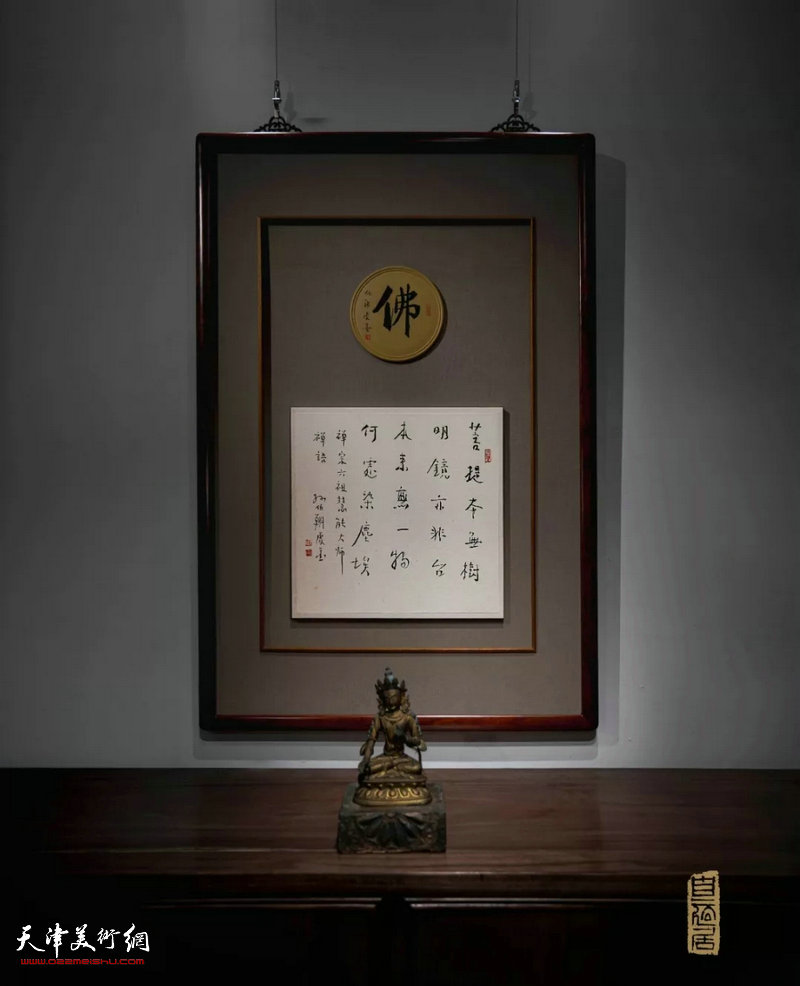 佛
菩提本無樹
明鏡亦非台
本來無一物
何處染塵埃
禪宗六祖慧能大師
禪語 孫伯翔虔書
天津美術網
www.022meishu.com